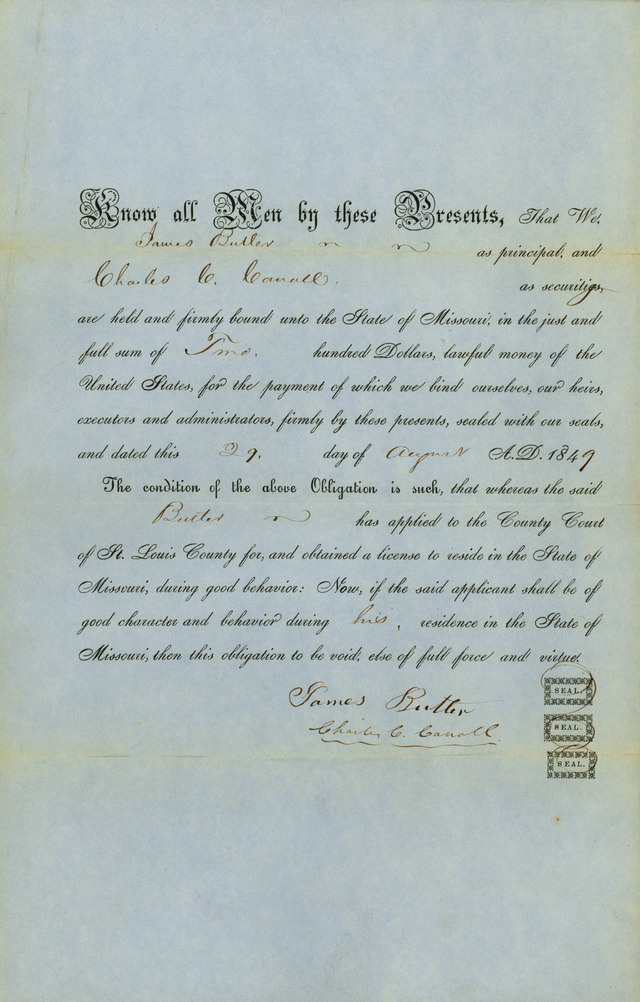 Know all Men by these Presents, That We,
James Butler
as principal, and
Charles C. Carroll.
as securities,
are held and firmly bound unto the State of Missouri, in the just and
full sum of Two. hundred Dollars, lawful money of the
United States, for the payment of which we bind ourselves, our heirs,
executors and administrators, firmly by these presents, sealed with our seals,
and dated this 29. day of August A.D. 1849
The condition of the above Obligation is such, that whereas the said
Butler has applied to the County Court
of St. Louis County for, and obtained a license to reside in the State of
Missouri, during good behavior: Now, if the said applicant shall be of
good character and behavior during his, residence in the State of
Missouri, then this obligation to be void, else of full force and virtue.
James Butler SEAL.
Charles C. Carroll. SEAL.
SEAL.